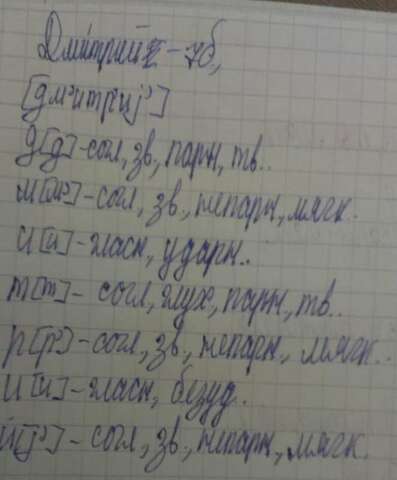 Дмитрий – 7б,
[дм'итр'иj']
д[д]-согл, зв, парн, тв..
м[м']-согл, зв., непарн, мягк.
и[и]-гласн, ударн..
т[т]- согл, глух, парн, тв..
р[р']-согл, зв., непарн, мягк..
и[и]-гласн, безуд..
й[j']-согл, зв., непарн, мягк.